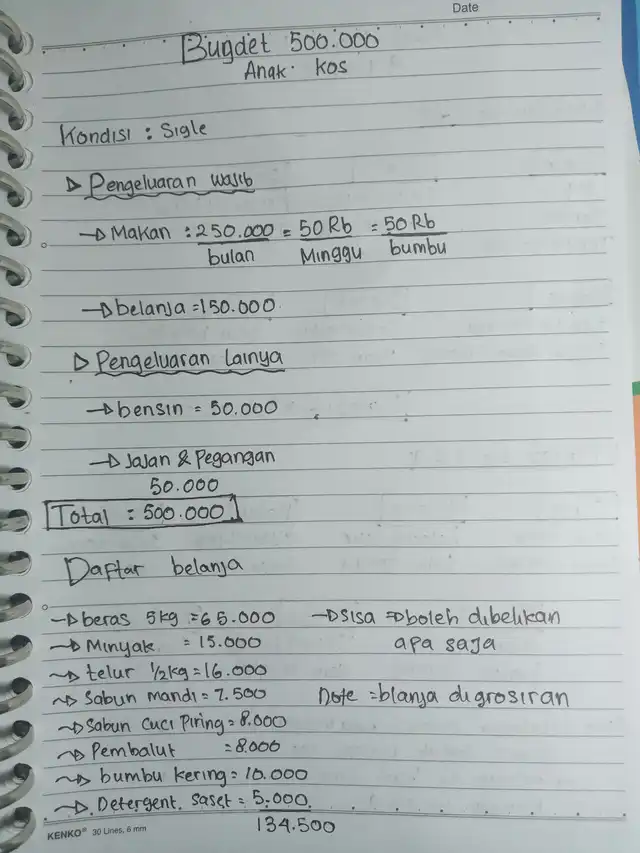 Date
Bugdet 500.000
Anak kos
Kondisi : Sigle
Pengeluaran wajib
Makan : 250.000 = 50 Rb = 50 Rb
bulan Minggu bumbu
belanja = 150.000
Pengeluaran lainya
bensin = 50.000
Jajan & Pegangan
50.000
Total : 500.000
Daftar belanja
beras 5kg = 65.000
Minyak = 15.000
telur 1/2 kg = 16.000
Sabun mandi = 7.500
Sabun cuci piring = 8.000
Pembalut = 8.000
bumbu kering = 10.000
Detergent. saset = 5.000
134.500
sisa => boleh dibelikan
apa saja
Note = blanja digrosiran
KENKO® 30 Lines, 6 mm